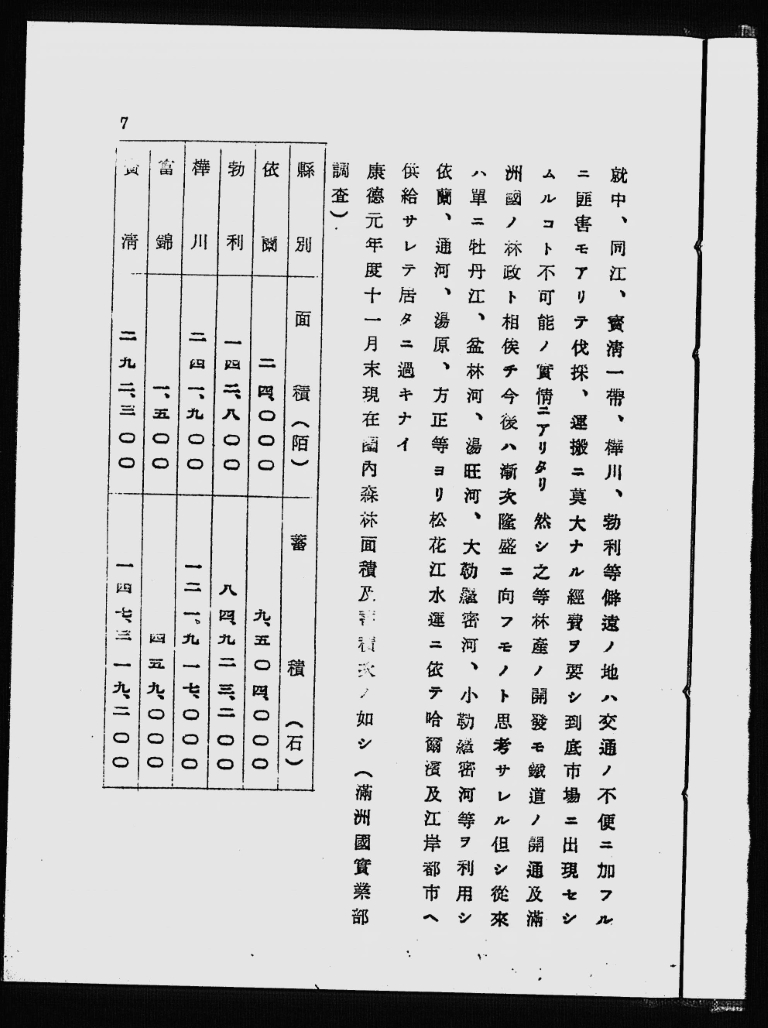 就中、同江、寶淸一帶、樺川、勃利等僻遠ノ地ハ交通ノ不便ニ加フル
ニ匪害モアリテ伐採、運搬ニ莫大ナル經費ヲ要シ到底市場ニ出現セシ
ムルコト不可能ノ實情ニアリタリ然シ之等林產ノ開發モ鐵道ノ開通及滿
洲國ノ林政ト相俟チ今後ハ漸次隆盛ニ向フモノト思考サレル但シ從來
ハ單ニ牡丹江、盆林河、湯旺河、大勒邋密河、小勒邋密河等ヲ利用シ
依蘭、通河、湯原、方正等ヨリ松花江水運ニ依テ哈爾濱及江岸都市ヘ
供給サレテ居タニ過キナイ
康德元年度十一月末現在國內森林面積及蓄積次ノ如シ（滿洲國實業部
調査）.
縣別 面積（陌） 蓄積（石）
依蘭 二四、〇〇〇 九、五〇四、〇〇〇
勃利 一四二、八〇〇 八四、九二三、二〇〇
樺川 二四一、九〇〇 一二一、九一七、〇〇〇
富錦 一、五〇〇 四五九、〇〇〇
寶淸 二九二、三〇〇 一四七、三一九、二〇〇
7